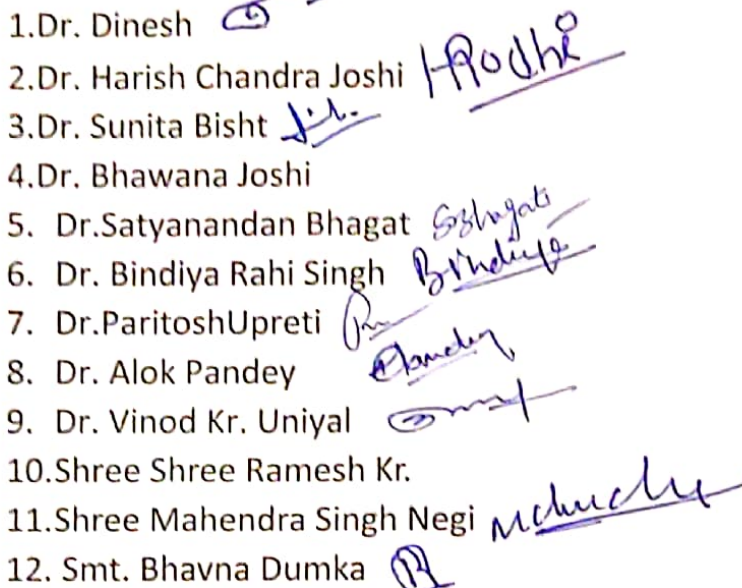 1.Dr. Dinesh
2.Dr. Harish Chandra Joshi
3.Dr. Sunita Bisht
4.Dr. Bhawana Joshi
5. Dr.Satyanandan Bhagat
6. Dr. Bindiya Rahi Singh Bindiya
7. Dr.ParitoshUpreti
8. Dr. Alok Pandey
9. Dr. Vinod Kr. Uniyal
10.Shree Shree Ramesh Kr.
11.Shree Mahendra Singh Negi
12. Smt. Bhavna Dumka